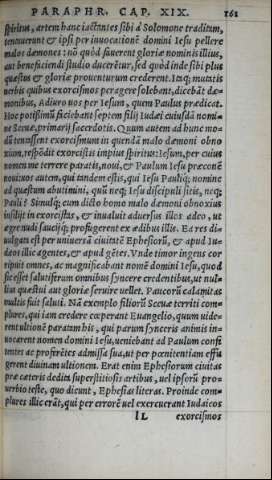 PARAPHR. CAP. XIX. 161
spiritus, artem hanc iactantes sibi à Solomone traditam,
tentauerunt & ipsi per inuocationē domini Iesu pellere
malos dæmones: nõ quòd fauerent gloriæ nominis illius,
aut beneficiendi studio ducerētur, sed quòd inde sibi plus
quæstus & gloriæ prouenturum crederent. Itaq; mutatis
uerbis quibus exorcismos peragere solebant, dicebāt dæ=
monibus, Adiuro uos per Iesum, quem Paulus prædicat.
Hoc potißimū faciebant septem filij Iudæi cuiusdā nomi=
ne Sceuæ, primarij sacerdotis. Quum autem ad hunc mo=
dū tentassent exorcismum in quendā malo dæmoni obno
xium, respōdit exorcistis impius spiritus: Iesum, per cuius
nomen me terrere paratis, noui, & Paulum Iesu præconē
noui: uos autem, qui tandem estis, qui Iesu Pauliq; nomine
ad quæstum abutimini, quū neq; Iesu discipuli sitis, neq;
Pauli? Simulq; cum dicto homo malo dæmoni obnoxius
insilijt in exorcistas, & inualuit aduersus illos adeo, ut
ægre nudi saucijq; profugerent ex ædibus illis. Ea res di=
uulgata est per uniuersā ciuitatē Ephesiorū, & apud Iu=
dæos illic agentes, & apud gētes. Vnde timor ingens cor
ripuit omnes, ac magnificabant nomē domini Iesu, quod
sic esset salutiferum omnibus syncere credentibus, ut nul=
lius quæstui aut gloriæ seruire uellet. Paucorū calamitas
multis fuit saluti. Nā exemplo filiorū Sceuæ territi com=
plures, qui iam credere cœperant Euangelio, quum uide=
rent ultionē paratam his, qui parum synceris animis in=
uocarent nomen domini Iesu, ueniebant ad Paulum confi
tentes ac profitētes admissa sua, ut per pœnitentiam effu
gerent diuinam ultionem. Erat enim Ephesiorum ciuitas
præ cæteris dedita superstitiosis artibus, uel ipsorū pro=
uerbio teste, quo dicunt, Ephesias literas. Proinde com=
plures illic erāt, qui per errorē uel exercuerant Iudaicos
lL exorcismos